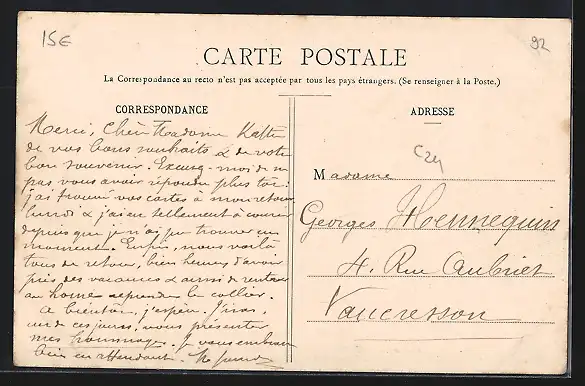 15€
92
CARTE POSTALE
La Correspondance au recto n'est pas acceptée par tous les pays étrangers. (Se renseigner à la Poste.)
CORRESPONDANCE
Merci, Chère Madame
de vos bons souhaits & de votre
bon souvenir. Excusez-moi de ne
pas vous avoir répondu plus tôt :
j'ai trouvé vos cartes à mon retour
lundi & j'ai eu tellement à courir
depuis que je n'ai pu trouver un
moment. Enfin, nous voilà
tous de retour, bien heureux d'avoir
pris des vacances & aussi de rentrer
au home reprendre le collier.
A bientôt, j'espère. J'irai,
un de ces jours, vous présenter
mes hommages. Je vous embrasse
bien en attendant.
ADRESSE
C24
Madame
Georges Hennequin
4, Rue Aubriet
Vaucresson